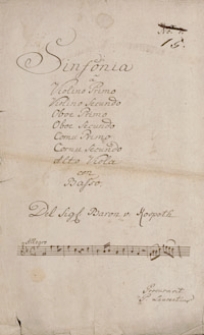 Sinfonia
a
Violino Primo
Violino Secundo
Oboe Primo
Oboe Secundo
Cornu Primo
Cornu Secundo
Alto Viola
con
Basso.
Del Sigl Baron o Kospoth
Allegro